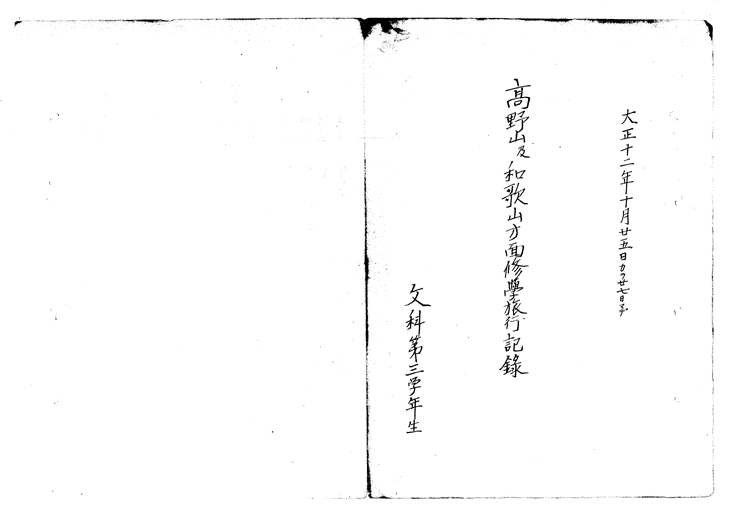 大正十二年十月廿五日カラ廿七日マデ
高野山及和歌山方面修學旅行記錄
文科第三学年生